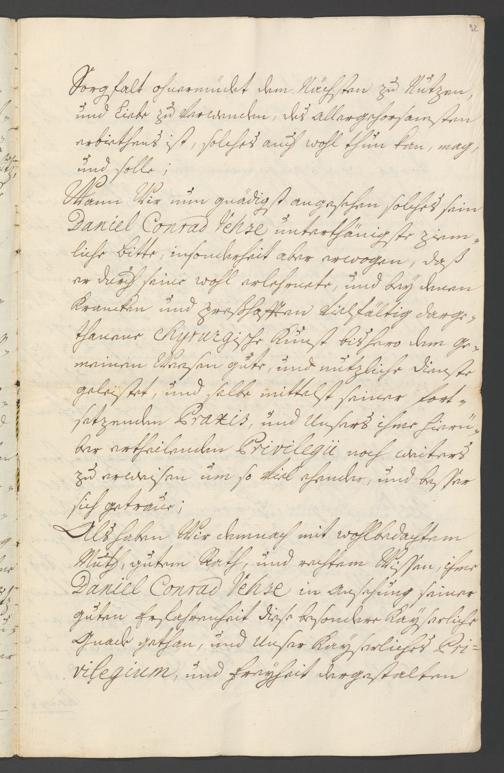 92
Sorgfalt ohnermüdet dem Nächsten zu Nutzen,
und Liebe zu verwenden, des allergehorsamsten
erbiethens ist, solches auch wohl thun kan, mag,
und solle;
Wann Wir nun gnädigst angesehen solches sein
Daniel Conrad Vehse unterthänigste ziem-
liche bitte, insonderheit aber erwogen, daß
er durch seine wohl erlehrnete, und bey denen
Krancken und presthafften vielfältig darge-
thanene Chyrurgische Kunst bishero dem Ge-
meinen Weesen gute, und nutzliche dienste
geleistet, und selbe mittelst seiner fort-
setzenden Praxis, und Unsers ihme hierü-
ber ertheilenden Privilegii noch weiters
zu erweisen um so viel ehender, und besser
sich getraue;
Als haben Wir demnach mit wohlbedachtem
Muth, gutem Rath, und rechtem Wissen, ihme
Daniel Conrad Vehse in Ansehung seiner
guten Erfahrenheit diese besondere Kayserliche
Gnade gethan, und Unser Kayserliches Pri-
vilegium, und Freyheit dergestalten